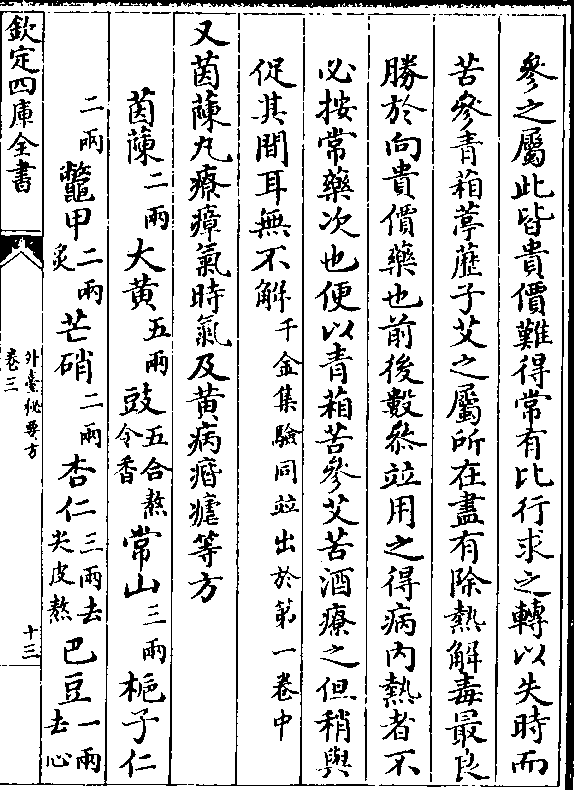 參之屬此皆貴價難得常有比行求之轉以失時而
苦參青葙葶藶子艾之屬所在盡有除熱解毒最良
勝於向貴價藥也前後數叅竝用之得病内熱者不
必按常藥次也便以青葙苦參艾苦酒療之但稍與
促其間耳無不解千金集驗同竝出於第一卷中
又茵蔯丸療瘴氣時氣及黄病痻瘧等方
茵蔯二兩大黄五兩豉五合熬令香常山三兩梔子仁
二兩鼈甲二兩炙芒硝二兩杏仁三兩去尖皮熬巴豆一兩去心
欽定四庫全書
外臺秘要方
卷三
十三